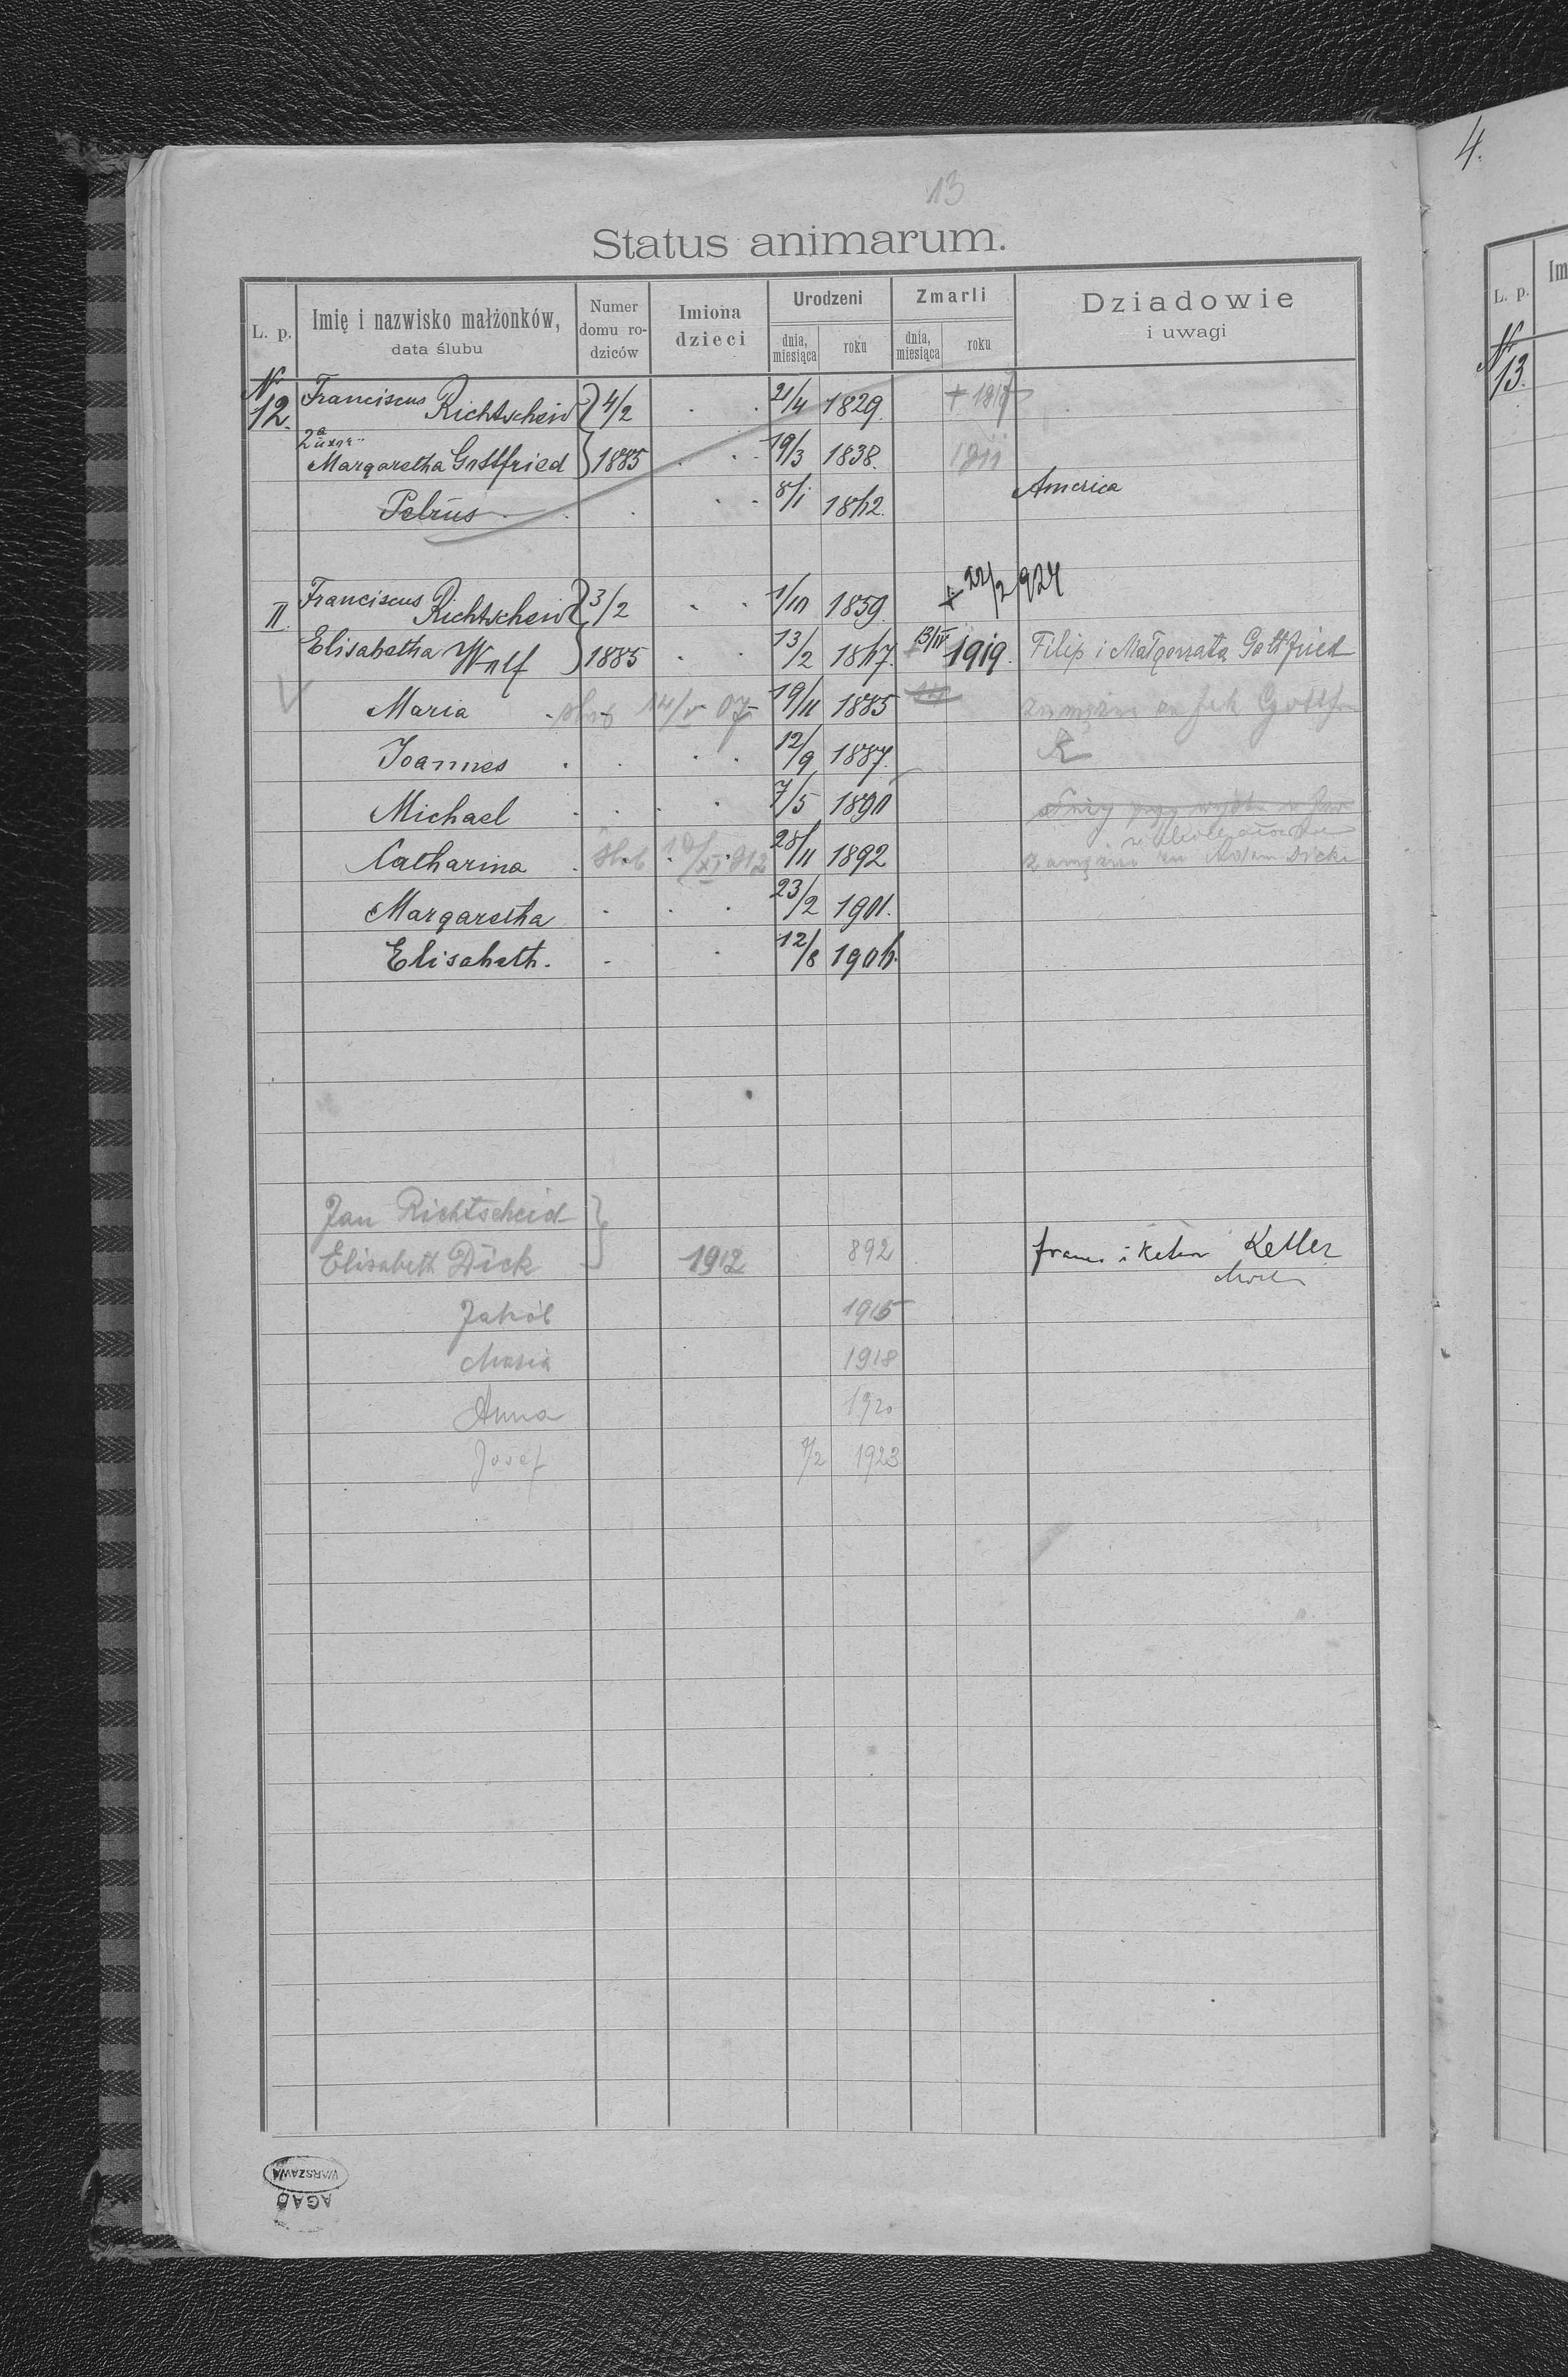 13
4.
Status animarum.
L. p. Imię i nazwisko małżonków, data ślubu Numer domu rodziców Imiona dzieci Urodzeni dnia, miesiąca roku Zmarli dnia, miesiąca roku Dziadowie i uwagi
N 12. Franciscus Richtscheid 4/2 21/4 1829.
2a Margaretha Gottfried 1885 19/3 1838. 1911
Petrus 8/1 1872. America
II. Franciscus Richtscheid 3/2 1/10 1859. + 22/2 924
Elisabetha Wolf 1885 13/2 1867. 13/IV 1919. Filip i Małgorzata Gottfried
Maria ślub 14/V 07 19/11 1885 zamężna
Joannes 12/9 1887.
Michael 7/5 1890
Catharina ślub 10/XI 912 28/11 1892 zamężna za Adam Dick
Margaretha 23/2 1901.
Elisabeth. 12/8 1904.
Jan Richtscheid
Elisabeth Dick 1912 892 Keller
Jakób 1915
Maria 1918
Anna 1920
Josef 7/2 1923
WARSZAWA
AGAD
L. p.
Im
N 13.